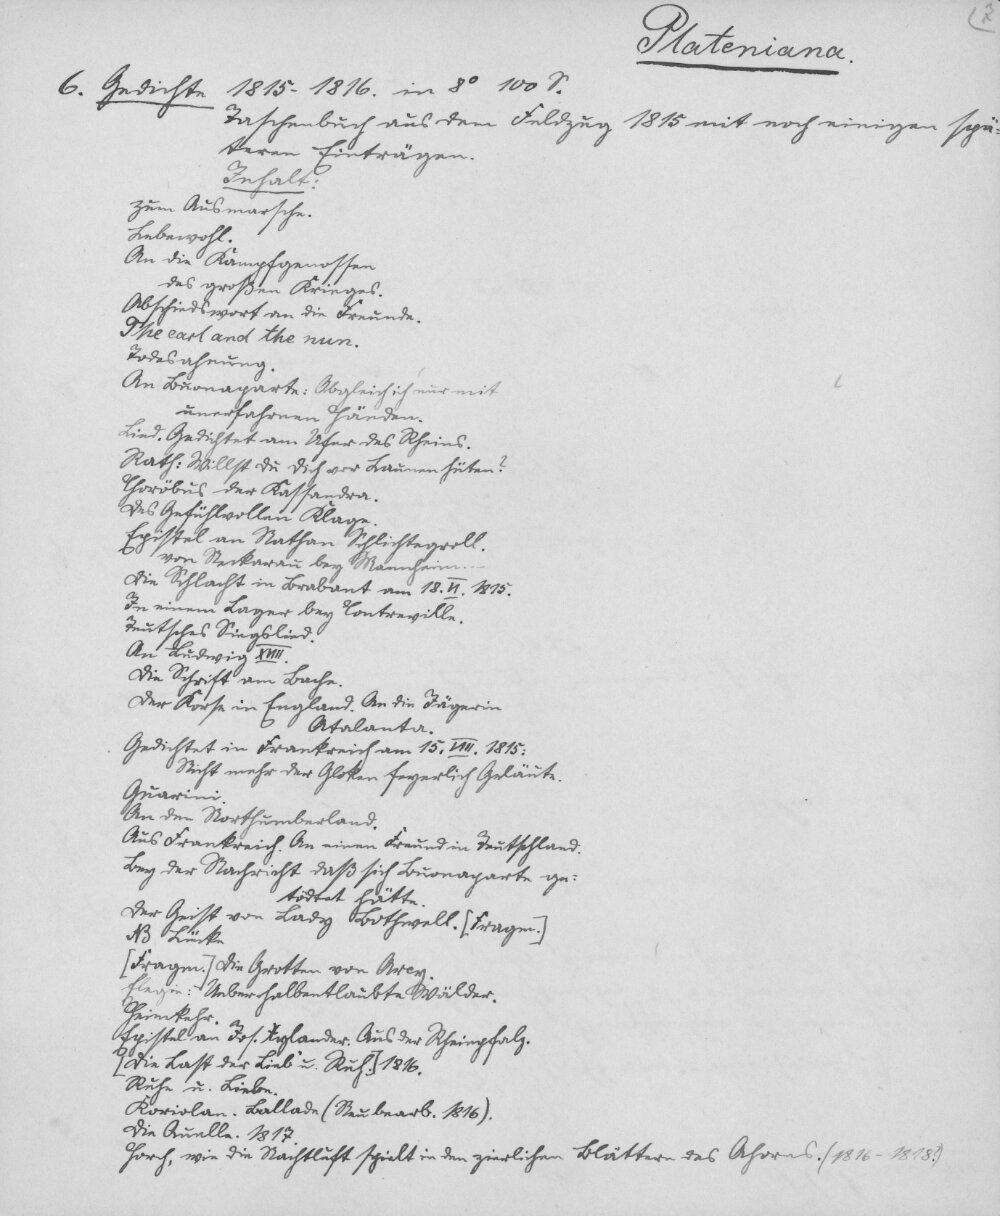 Plateniana.
6. Gedichte 1815-1816. in 8° 100 S.
Taschenbuch aus dem Feldzug 1815 mit noch einigen spä-
teren Einträgen.
Inhalt:
Zum Ausmarsche.
Lebewohl.
An die Kampfgenossen
des großen Krieges.
Abschiedswort an die Freunde.
The earl and the nun.
Todesahnung.
An Buonaparte: Obgleich ich nur mit
unerfahrnen Händen.
Lied. Gedichtet am Ufer des Rheins.
Rath: Willst du dich vor Launen hüten?
Choröbus der Kassandra.
Des Gefühlvollen Klage.
Epistel an Nathan Schlichtegroll.
von Neckarau bey Mannheim
Die Schlacht in Brabant am 18. VI. 1815.
In einem Lager bey Contreville.
Teutsches Siegslied.
An Ludwig XVIII.
Die Schrift am Bache.
Der Korse in England. An die Jägerin
Atalanta.
Gedichtet in Frankreich am 15. VIII. 1815:
Nicht mehr der Gloken feyerlich Geläute.
Guarini.
An den Northumberland.
Aus Frankreich. An einen Freund in Teutschland.
Bey der Nachricht daß sich Buonaparte ge-
tödtet hätte.
Der Geist von Lady Bothwell. [Fragm.]
NB Lücke
[Fragm.] Die Grotten von Arcy.
Elegie: Ueber halbentlaubte Wälder.
Heimkehr.
Epistel an Jos. Xylander. Aus der Rheinpfalz.
[Die Last der Lieb' u. Ruh.] 1816.
Ruhe u. Liebe.
Koriolan. Ballade (Neubearb. 1816).
Die Quelle. 1817.
Horch, wie die Nachtluft spielt in den zierlichen Blättern des Ahorns. (1816-1818?)